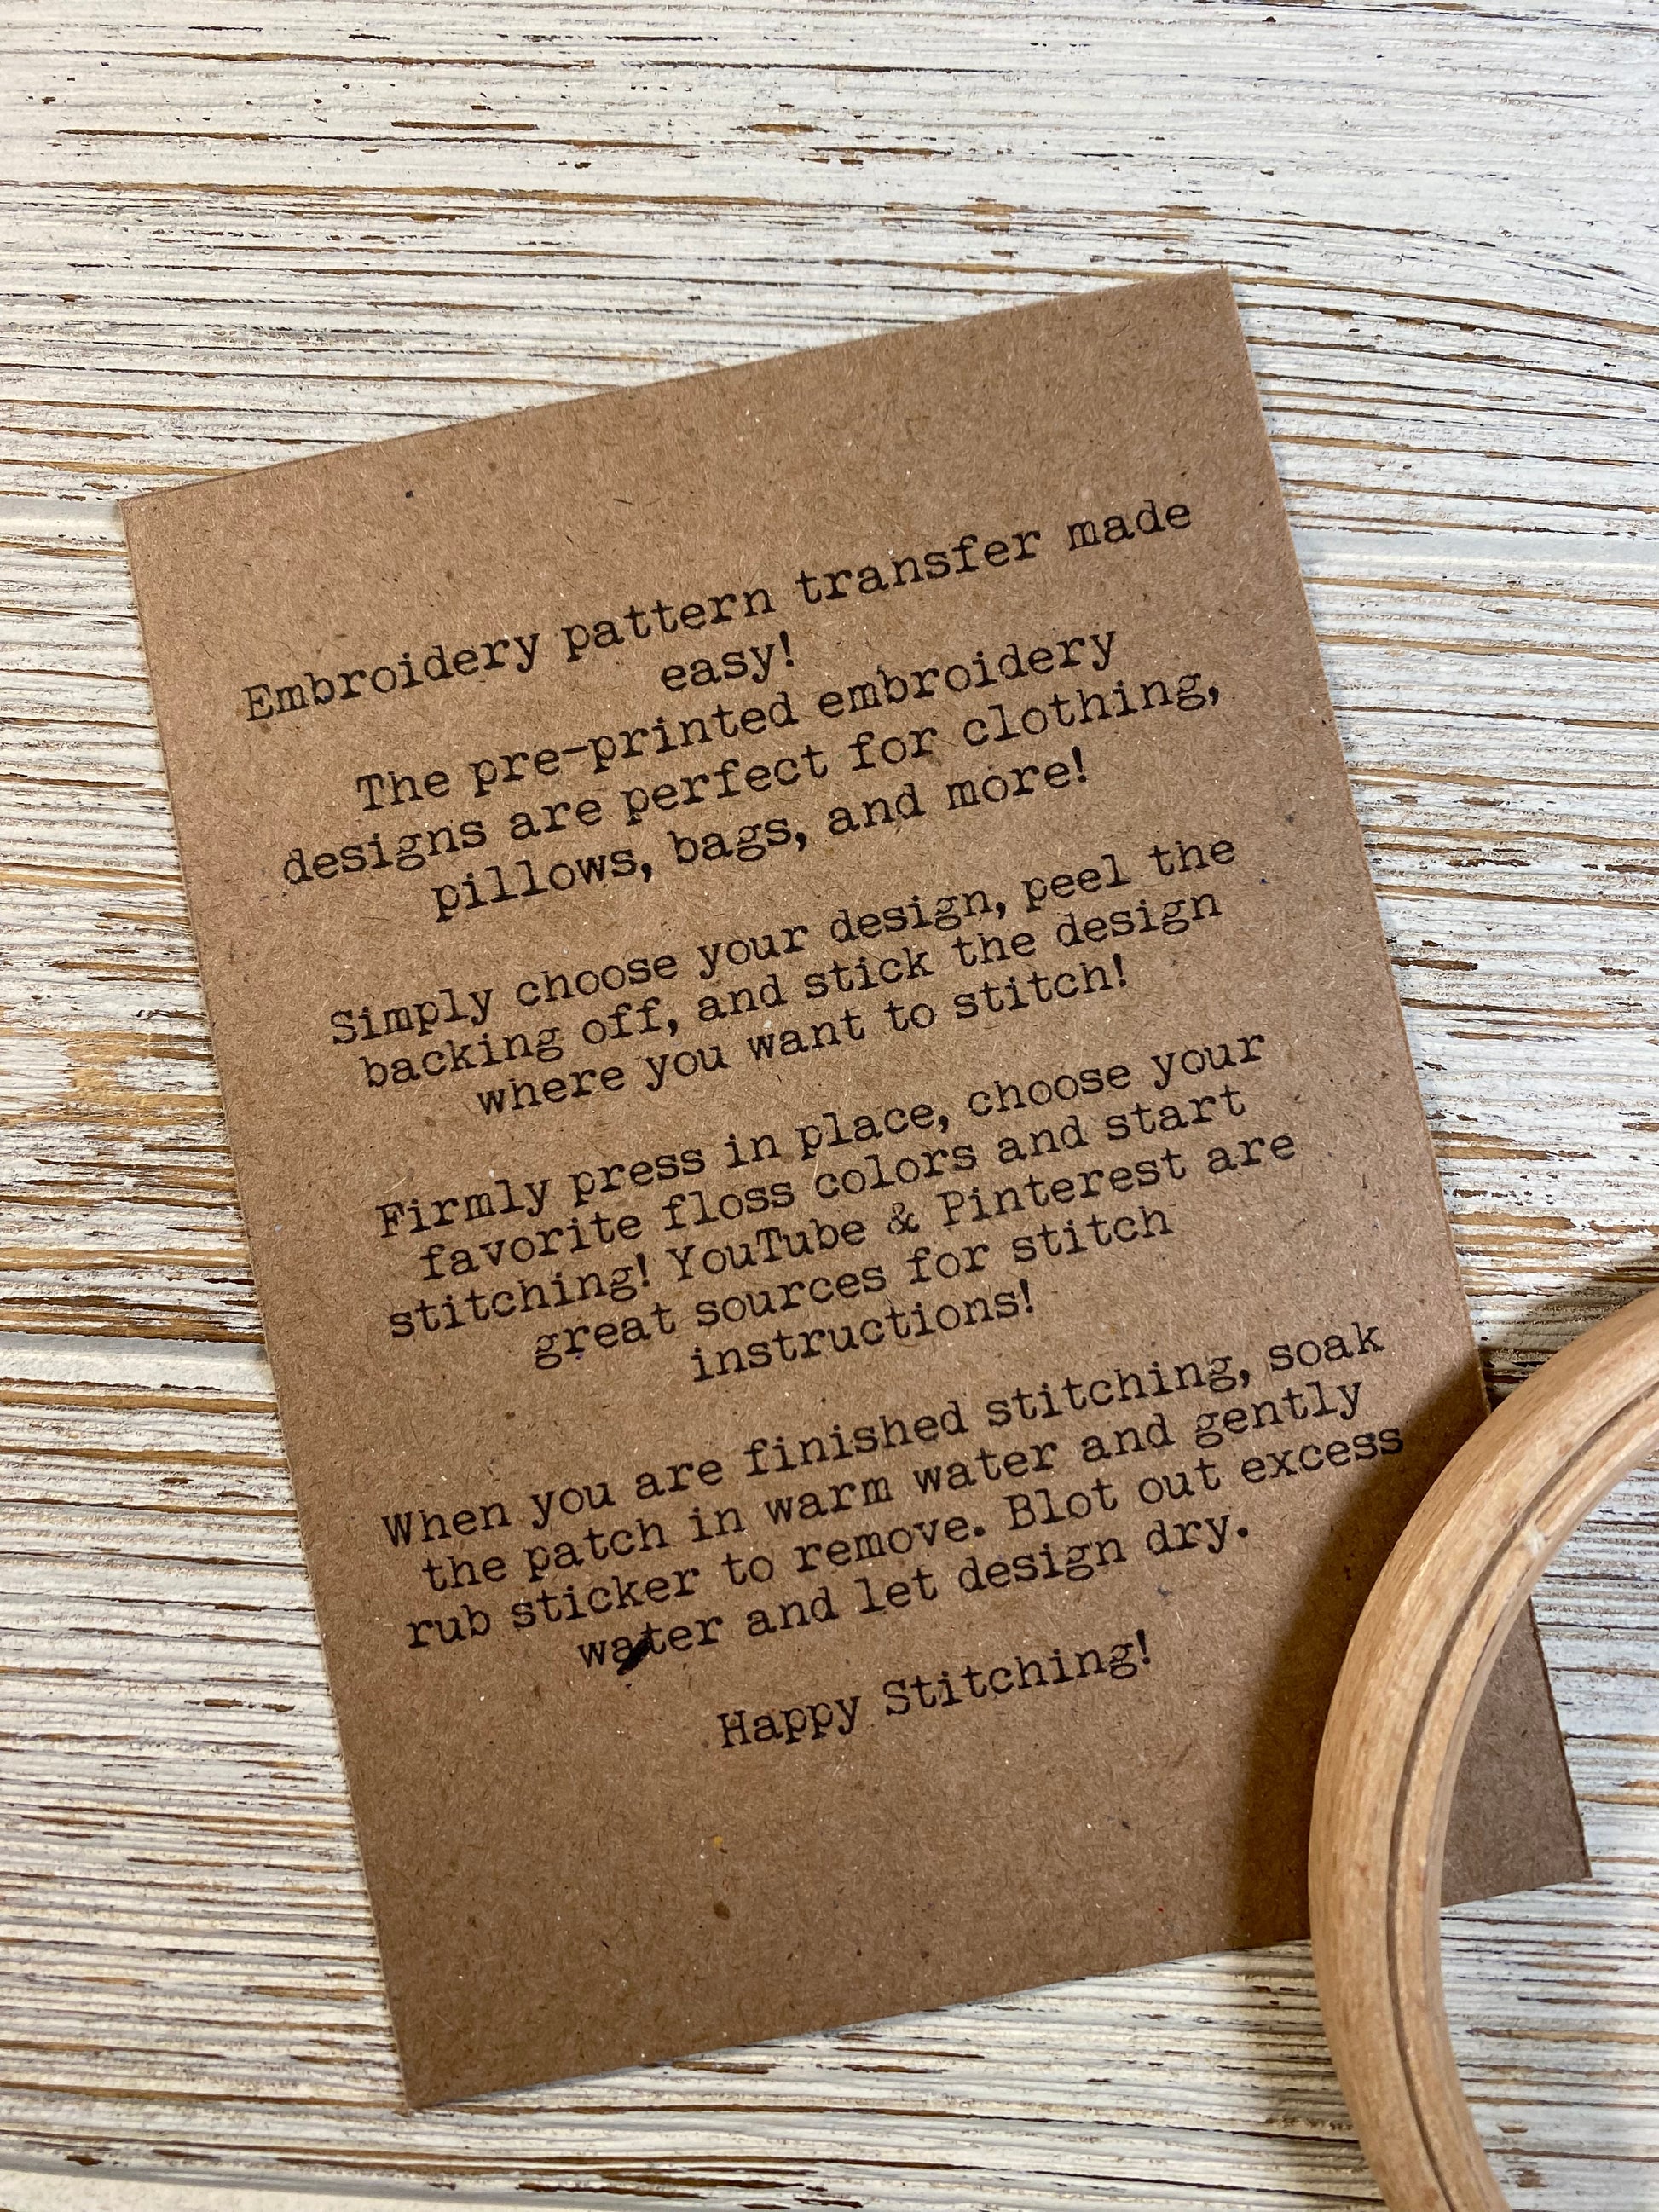 Embroidery pattern transfer made
easy!
The pre-printed embroidery
designs are perfect for clothing,
pillows, bags, and more!
Simply choose your design, peel the
backing off, and stick the design
where you want to stitch!
Firmly press in place, choose your
favorite floss colors and start
stitching! YouTube & Pinterest are
great sources for stitch
instructions!
When you are finished stitching, soak
the patch in warm water and gently
rub sticker to remove. Blot out excess
water and let design dry.
Happy Stitching!